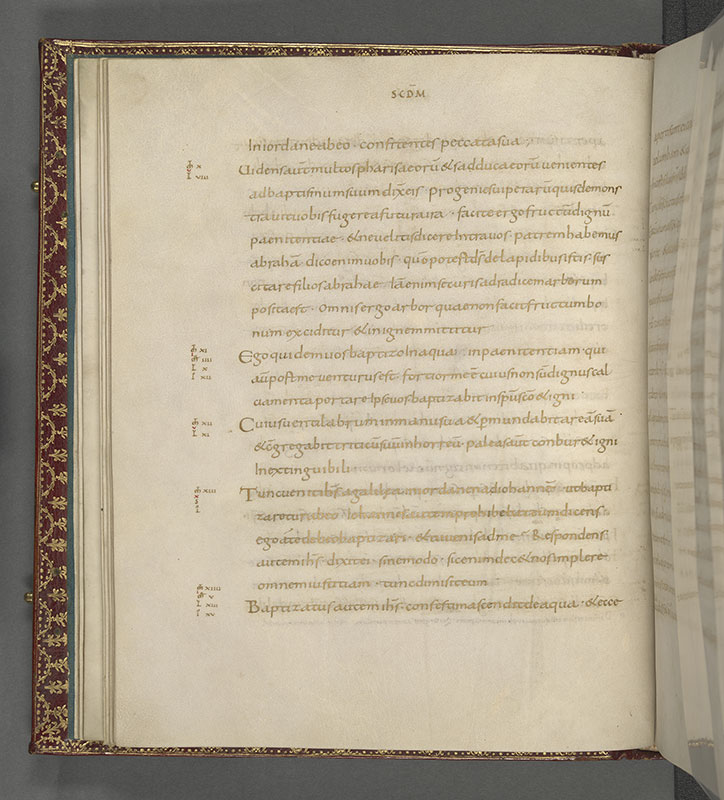 SCDM
In iordane abeo · confitentes peccata sua ;
X
VIII
Uidens autm multos pharisaeorū & sadducaeorū uenientes
ad baptismum suum dix eis · progenies uiperarū quis demons
trauit uobis fugere a futura ira · facite ergo fructū dignū
paenitentiae · & ne uelitis dicere intra uos · patrem habemus
abrahā · dico enim uobis · qūo potest ds̄ de lapidibus istis sus
citare filios abrahae · Iā enim securis ad radicem arborum
posita est · Omnis ergo arbor quae non facit fructum bo
num exciditur & in ignem mittitur
XI
IIII
X
XII
Ego quidem uos baptizo in aqua · in paenitentiam · qui
aū post me venturus est · fortior me ē cuius non sū dignus cal
ciamenta portare · Ipse uos baptizabit in spū scō & igni ·
XII
XI
Cuius uentilabrum in manu sua & p̄mundabit areā suā ·
& cōgregabit triticū suū in horreū · paleas aūt conbur& igni
Inextinguibili
XIII
Tunc uenit ihs̄ a galilea in iordanen ad iohannē · ut bapti
zaretur ab eo · Iohannes autem prohibebat eum dicens ·
ego a te debeo baptizari · & tu uenis ad me · Respondens
autem ihs̄ · dixit ei · sine modo · sic enim dec& nos implere
omnem iustitiam · tunc dimisit eum
XIIII
V
XIII
XV
Baptizatus autem ihs̄ · confestim ascendit de aqua · & ecce